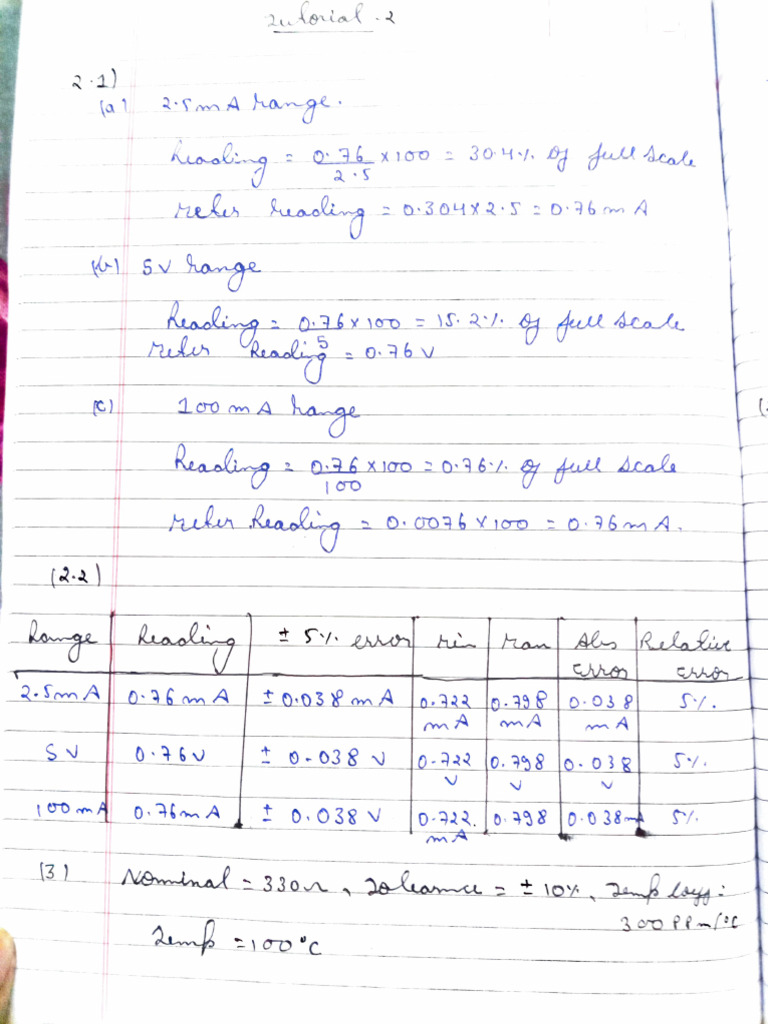 Tutorial - 2
2.1)
(a) 2.5mA range.
Reading = 0.76/2.5 × 100 = 30.4% of full scale
Meter reading = 0.304 × 2.5 = 0.76 mA
(b) 5V range
Reading = 0.76/5 × 100 = 15.2% of full scale
Meter Reading = 0.76 V
(c) 100 mA range
Reading = 0.76/100 × 100 = 0.76% of full scale
Meter Reading = 0.0076 × 100 = 0.76 mA.
(2.2)
Range Reading ± 5% error Min Max Abs Error Relative Error
2.5mA 0.76 mA ± 0.038 mA 0.722 mA 0.798 mA 0.038 mA 5%.
5V 0.76V ± 0.038 V 0.722 V 0.798 V 0.038 V 5%.
100mA 0.76mA ± 0.038 V 0.722. mA 0.798 0.038mA 5%
(3) Nominal = 330Ω, Tolerance = ± 10%, Temp :
300 PPm/°C
Temp = 100°C